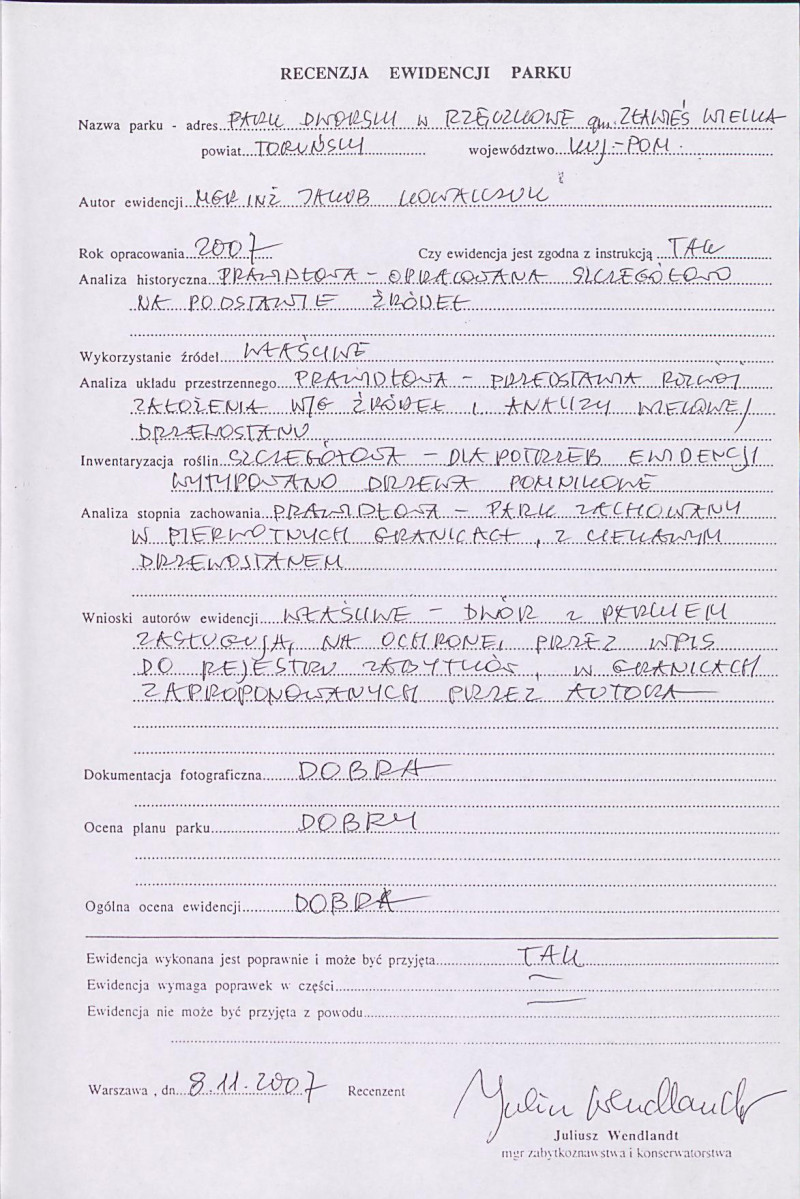 RECENZJA EWIDENCJI PARKU
Nazwa parku - adres PARK DWORSKI W RZĘCZKOWIE gm. ZŁAWIEŚ WIELKA
powiat TORUŃSKI województwo KUJ.-POM.
Autor ewidencji MGR INŻ JAKUB KOWALCZUK
Rok opracowania 2007 Czy ewidencja jest zgodna z instrukcją TAK
Analiza historyczna PRAWIDŁOWA - OPRACOWANA SZCZEGÓŁOWO
NA PODSTAWIE ŹRÓDEŁ
Wykorzystanie źródeł WŁAŚCIWE
Analiza układu przestrzennego PRAWIDŁOWA - PRZEDSTAWIA ROZWÓJ
ZAŁOŻENIA W/G ŹRÓDEŁ I ANALIZY WIEKOWEJ
DRZEWOSTANU
Inwentaryzacja roślin SZCZEGÓŁOWA - DLA POTRZEB EWIDENCJI
WYTYPOWANO DRZEWA POMNIKOWE
Analiza stopnia zachowania PRAWIDŁOWA - PARK ZACHOWANY
W PIERWOTNYCH GRANICACH, Z CIEKAWYM
DRZEWOSTANEM
Wnioski autorów ewidencji WŁAŚCIWE - DWÓR Z PARKIEM
ZASŁUGUJĄ NA OCHRONĘ PRZEZ WPIS
DO REJESTRU ZABYTKÓW, W GRANICACH
ZAPROPONOWANYCH PRZEZ AUTORA
Dokumentacja fotograficzna DOBRA
Ocena planu parku DOBRY
Ogólna ocena ewidencji DOBRA
Ewidencja wykonana jest poprawnie i może być przyjęta TAK
Ewidencja wymaga poprawek w części —
Ewidencja nie może być przyjęta z powodu —
Warszawa , dn. 8.11.2007 Recenzent
Juliusz Wendlandt
Juliusz Wendlandt
mgr zabytkoznawstwa i konserwatorstwa